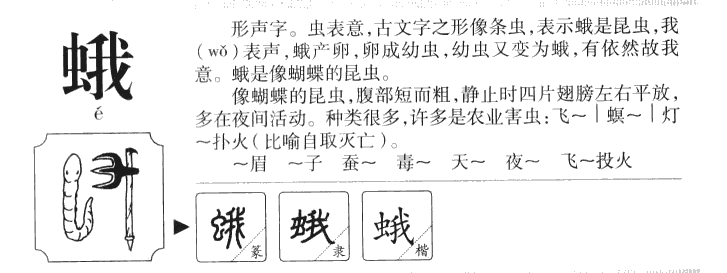 蛾
é
形声字。虫表意,古文字之形像条虫,表示蛾是昆虫,我
(wǒ)表声,蛾产卵,卵成幼虫,幼虫又变为蛾,有依然故我
意。蛾是像蝴蝶的昆虫。
像蝴蝶的昆虫,腹部短而粗,静止时四片翅膀左右平放,
多在夜间活动。种类很多,许多是农业害虫:飞~｜螟~｜灯
~扑火(比喻自取灭亡)。
~眉 ~子 蚕~ 毒~ 天~ 夜~ 飞~投火
蛾 篆 蛾 隶 蛾 楷